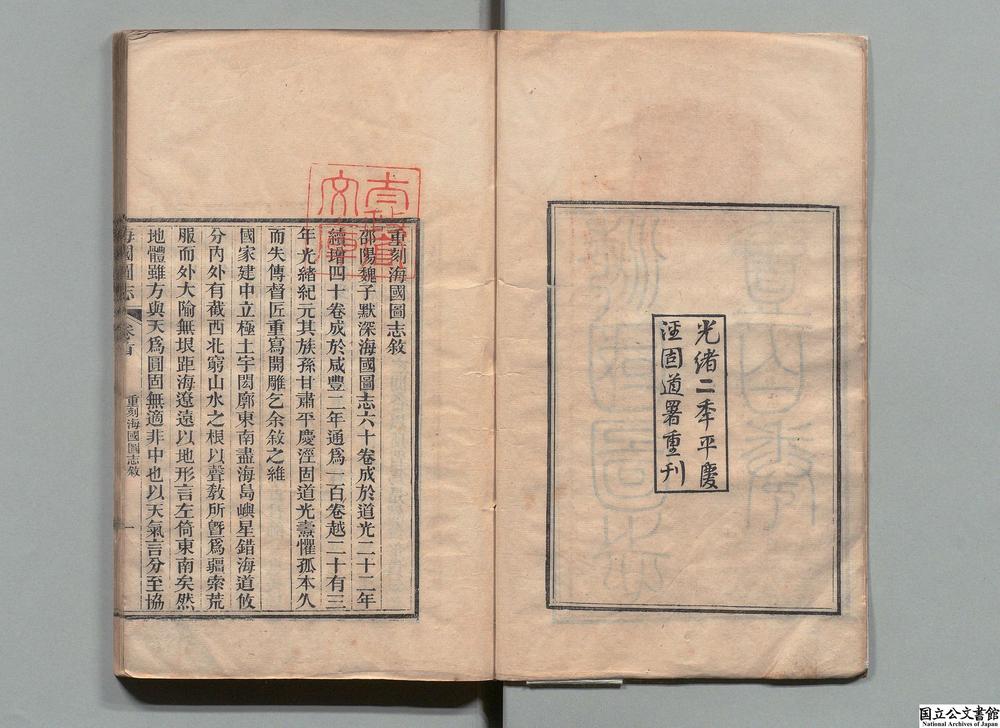 光緒二季平慶
涇固道署重刊
重刻海國圖志敘
邵陽魏子默深海國圖志六十卷成於道光二十二年
續增四十卷成於咸豐二年通爲一百卷越二十有三
年光緒紀元其族孫甘肅平慶涇固道光燾懼孤本久
而失傳督匠重寫開雕乞余敘之維
國家建中立極土宇閎廓東南盡海島嶼星錯海道攸
分內外有截西北窮山水之根以聲教所曁爲疆索荒
服而外大隃無垠距海遼遠以地形言左倚東南矣然
地體雖方與天爲圓固無適非中也以天氣言分至協
海國圖志 卷首 重刻海國圖志敘 一
国立公文書館
National Archives of Japan